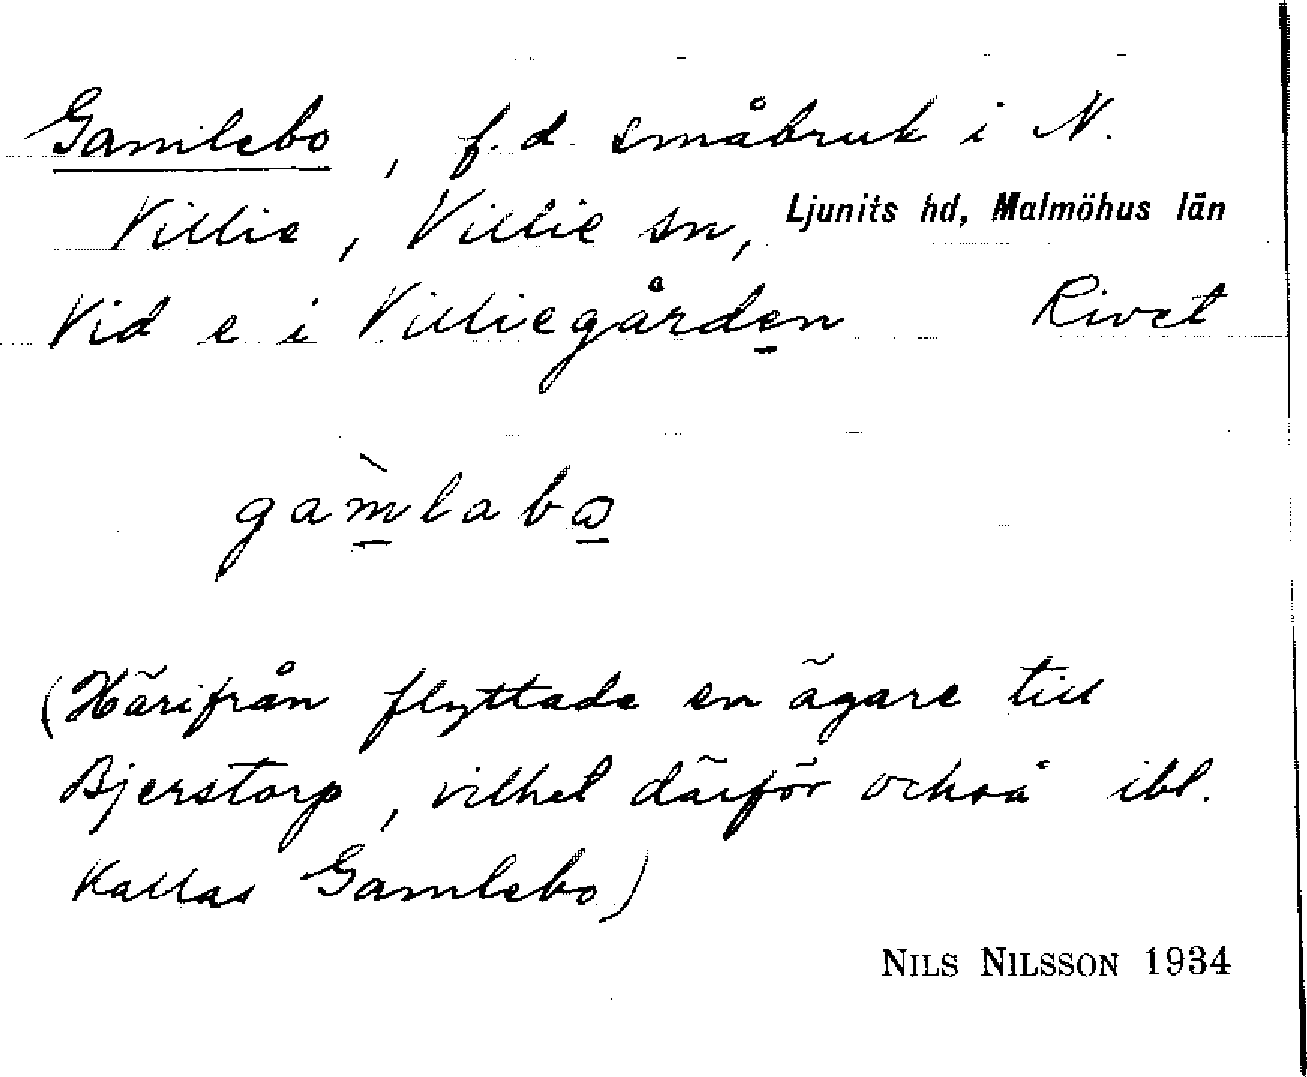 Gamlebo, f.d. småbruk i N.
Villie, Villie sn, Ljunits hd, Malmöhus län
Vid e i Villiegården Rivet
gam̀labo
(Härifrån flyttade en ägare till
Bjerstorp, vilket därför också ibl.
kallas Gamlebo)
NILS NILSSON 1934